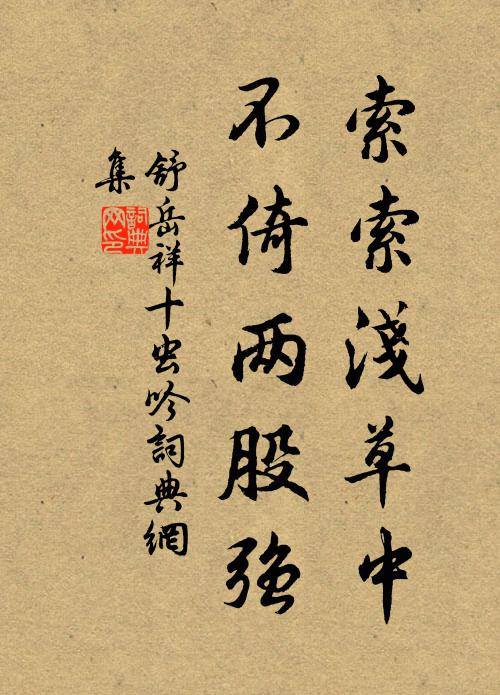 索索淺草中
不倚两股強
舒岳祥十虫吟詞典網
集
詞典网印